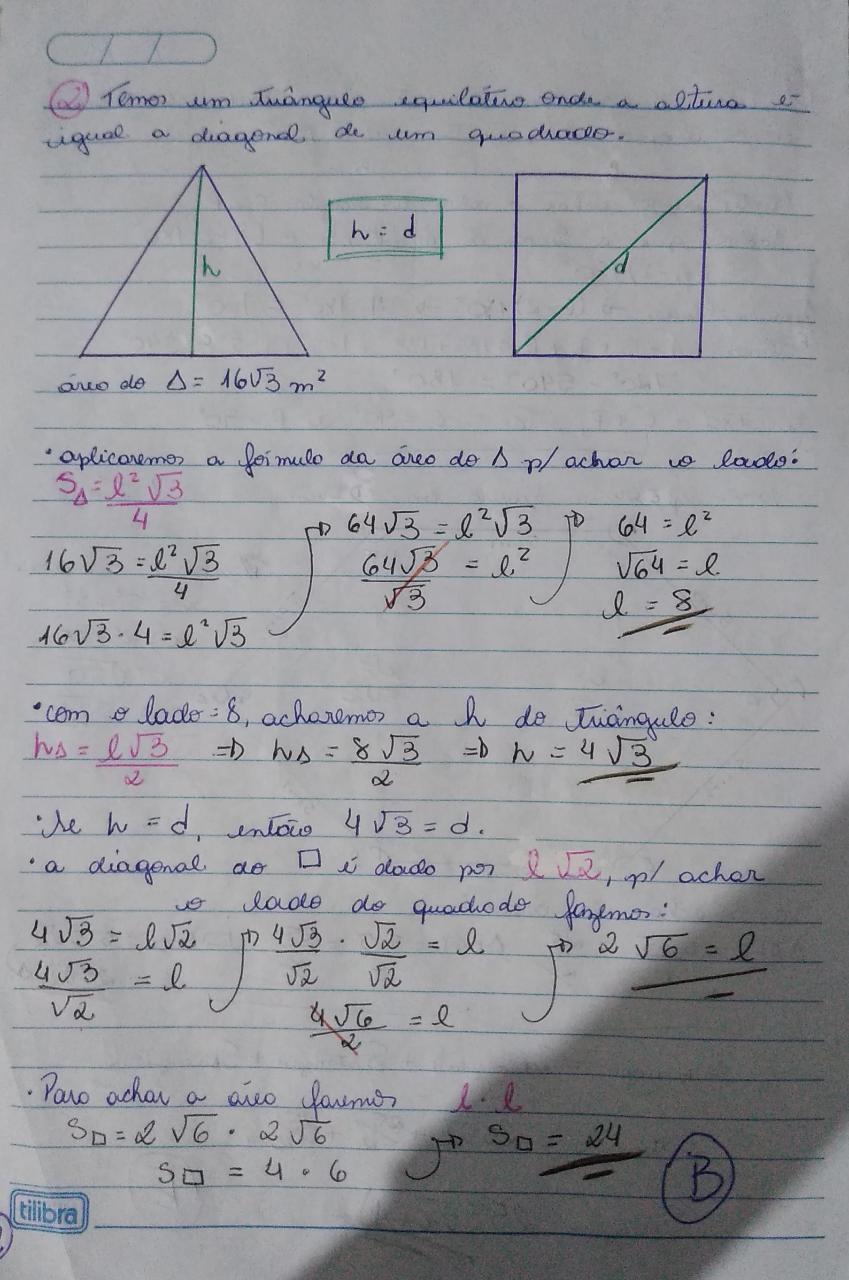 2) Temos um triângulo equilátero onde a altura é
igual a diagonal de um quadrado.
h
h = d
d
área do Δ = 16√3 m²
• aplicaremos a fórmula da área do Δ p/ achar o lado:
S△ = l²√3/4
16√3 = l²√3/4
16√3 · 4 = l²√3
⇒ 64√3 = l²√3
64√3/√3 = l²
⇒ 64 = l²
√64 = l
l = 8
• com o lado = 8, acharemos a h do triângulo:
h△ = l√3/2 ⇒ h△ = 8√3/2 ⇒ h = 4√3
• Se h = d, então 4√3 = d.
• a diagonal do □ é dado por l√2, p/ achar
o lado do quadrado fazemos:
4√3 = l√2
4√3/√2 = l
⇒ 4√3/√2 · √2/√2 = l
4√6/2 = l
⇒ 2√6 = l
• Para achar a área faremos l · l
S□ = 2√6 · 2√6
S□ = 4 · 6
⇒ S□ = 24
B
tilibra